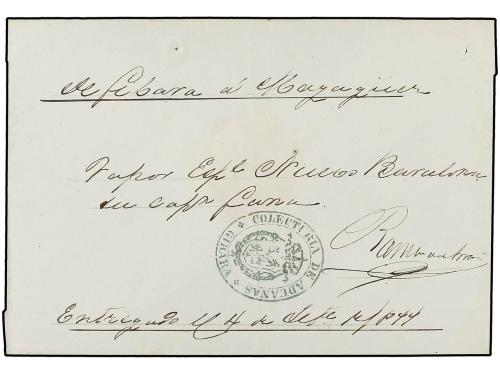 de Gibara á Mayagüez
Vapor Espl Nuevo Barcelona
su capn Cana
COLECTURIA DE ADUANAS * GIBARA *
Entregado el 4 de